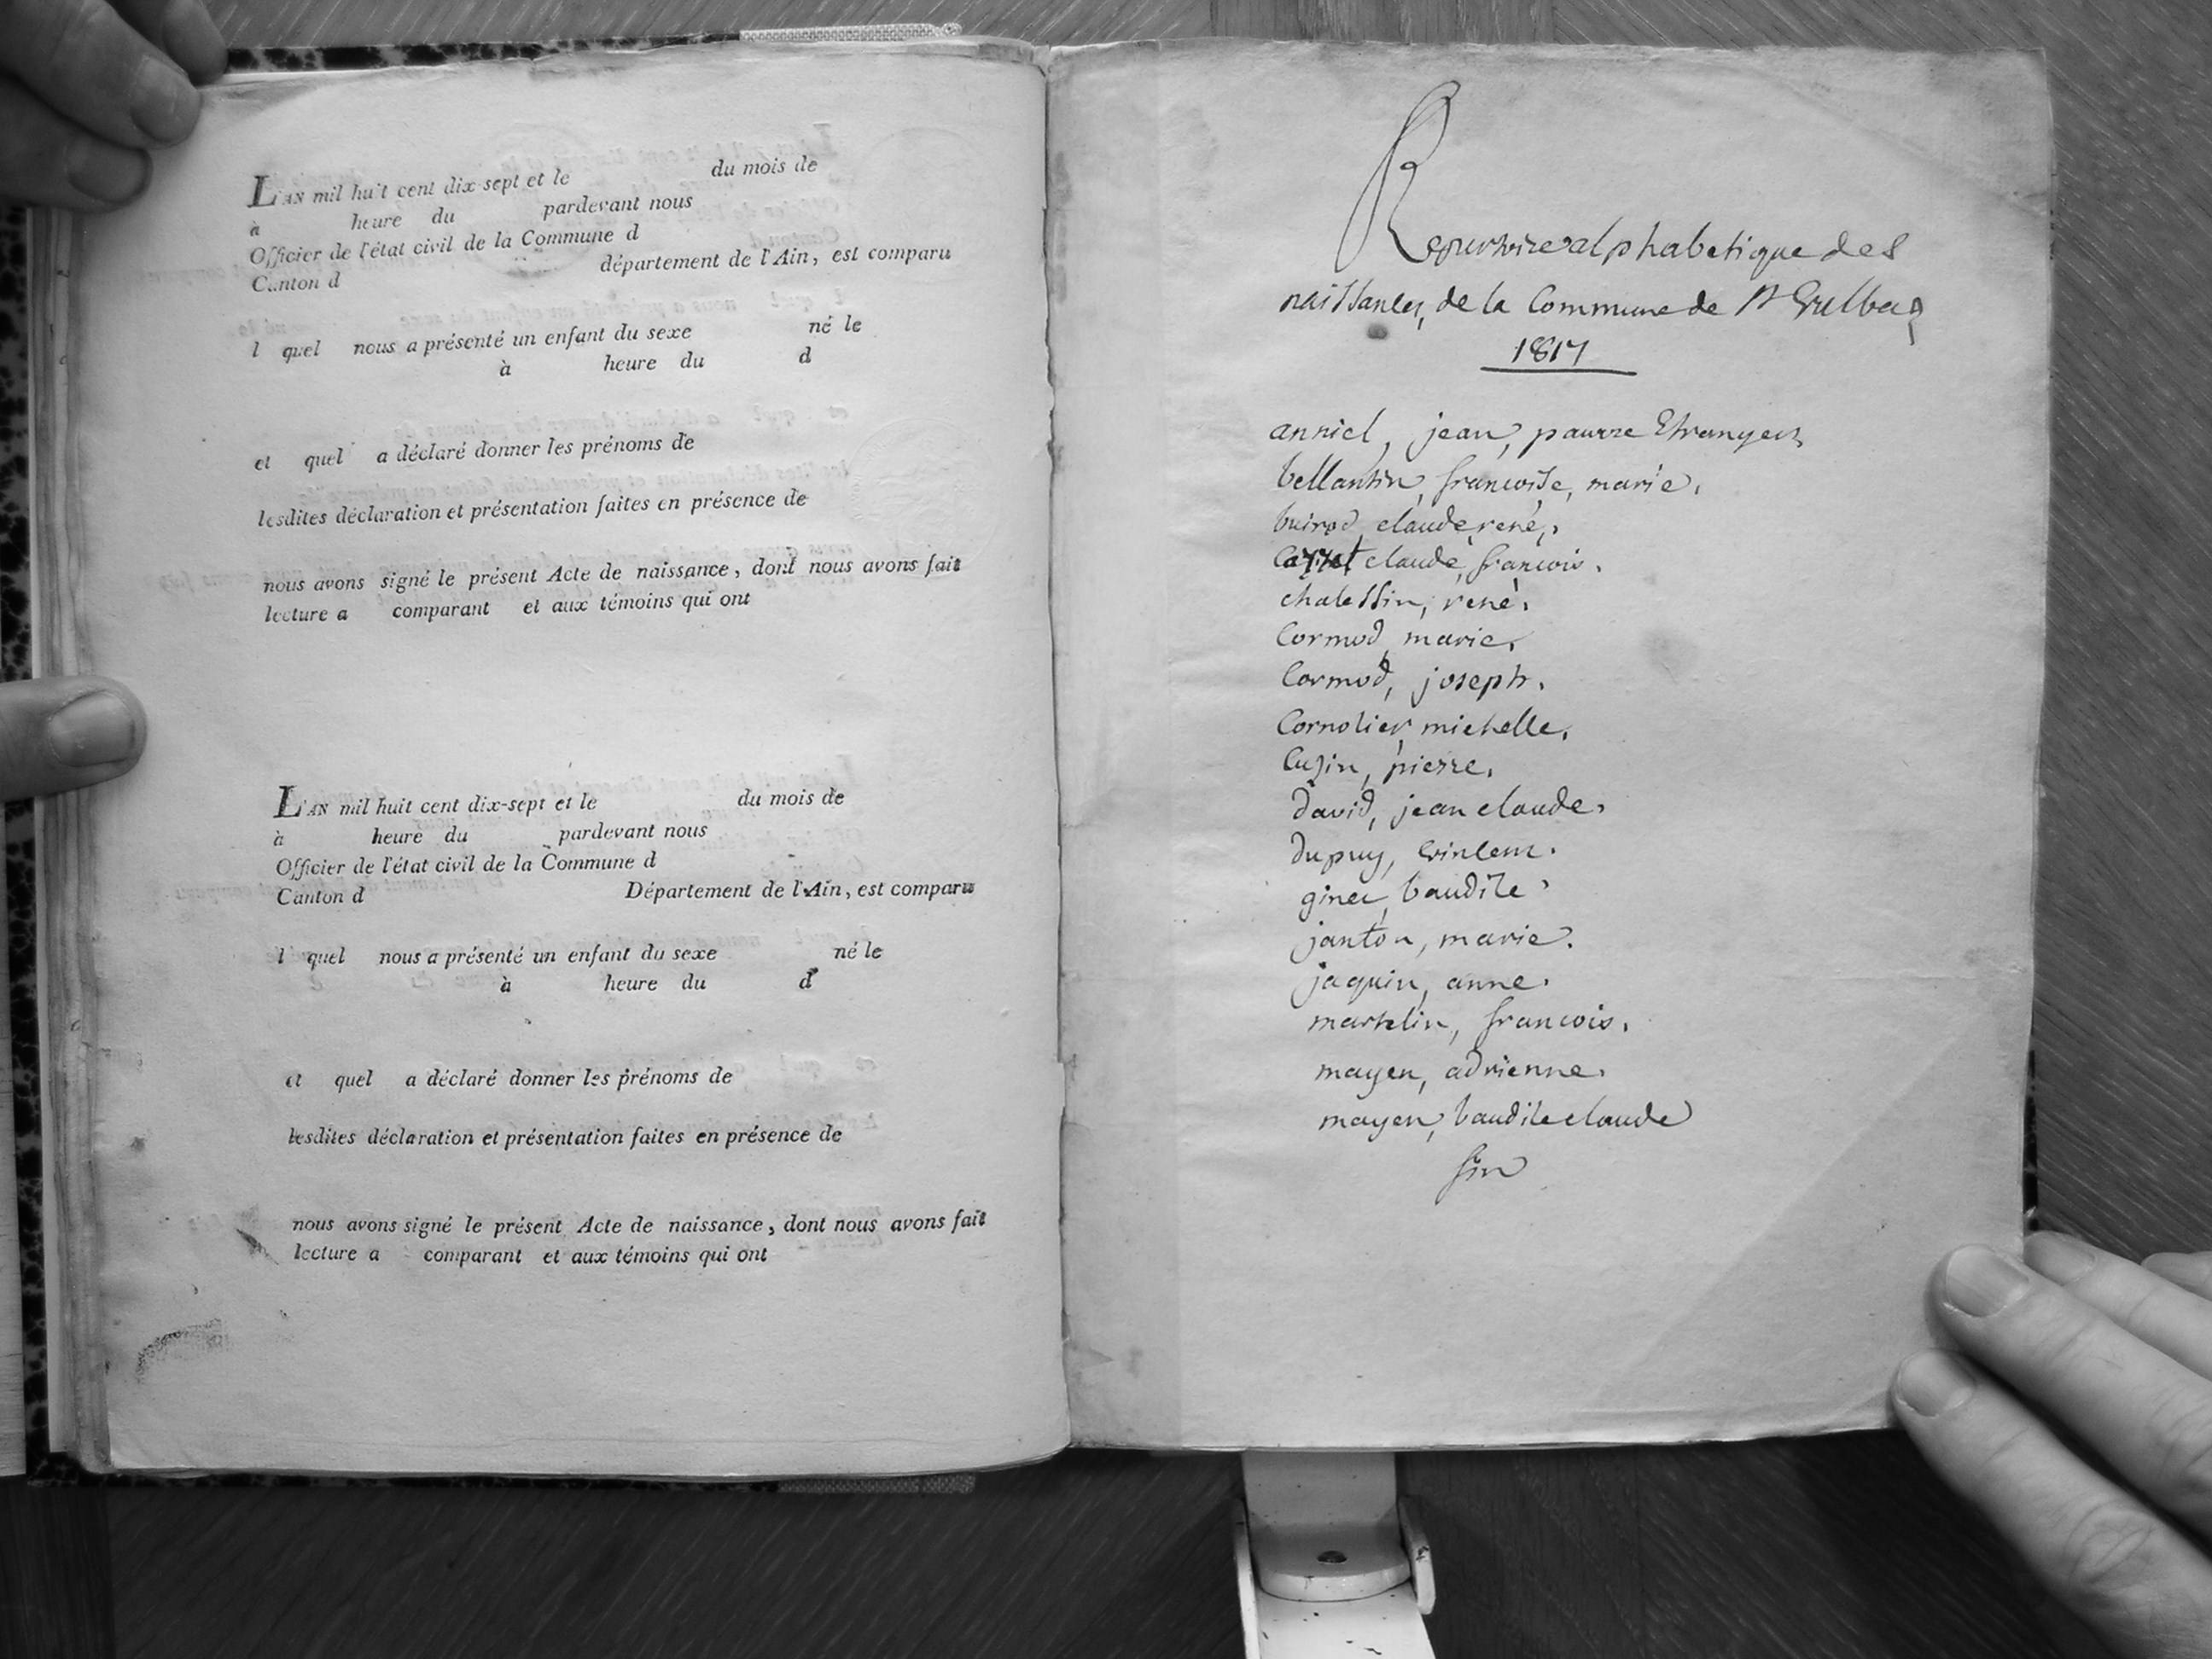 L'AN mil huit cent dix-sept et le du mois de
à heure du pardevant nous
Officier de l'état civil de la Commune d
Canton d département de l'Ain, est comparu
l quel nous a présenté un enfant du sexe né le
à heure du d
et quel a déclaré donner les prénoms de
lesdites déclaration et présentation faites en présence de
nous avons signé le présent Acte de naissance, dont nous avons fait
lecture a comparant et aux témoins qui ont
L'AN mil huit cent dix-sept et le du mois de
à heure du pardevant nous
Officier de l'état civil de la Commune d
Canton d Département de l'Ain, est comparu
l quel nous a présenté un enfant du sexe né le
à heure du d
et quel a déclaré donner les prénoms de
lesdites déclaration et présentation faites en présence de
nous avons signé le présent Acte de naissance, dont nous avons fait
lecture a comparant et aux témoins qui ont
alphabetique des
naissances, de la Commune de St
1817
anniel, jean, pauvre Etranger
bellantin, francoise, marie.
buirod, claude, rené,
claude, francois.
chalessin, rené.
Cormod, marie.
Cormod, joseph.
Cornolier, michelle.
Cuzin, pierre.
david, jean claude.
dupuy,
baudile
janton, marie.
jaquin, anne.
marthelin, francois.
mayen, adrienne.
mayen, baudile claude
fin